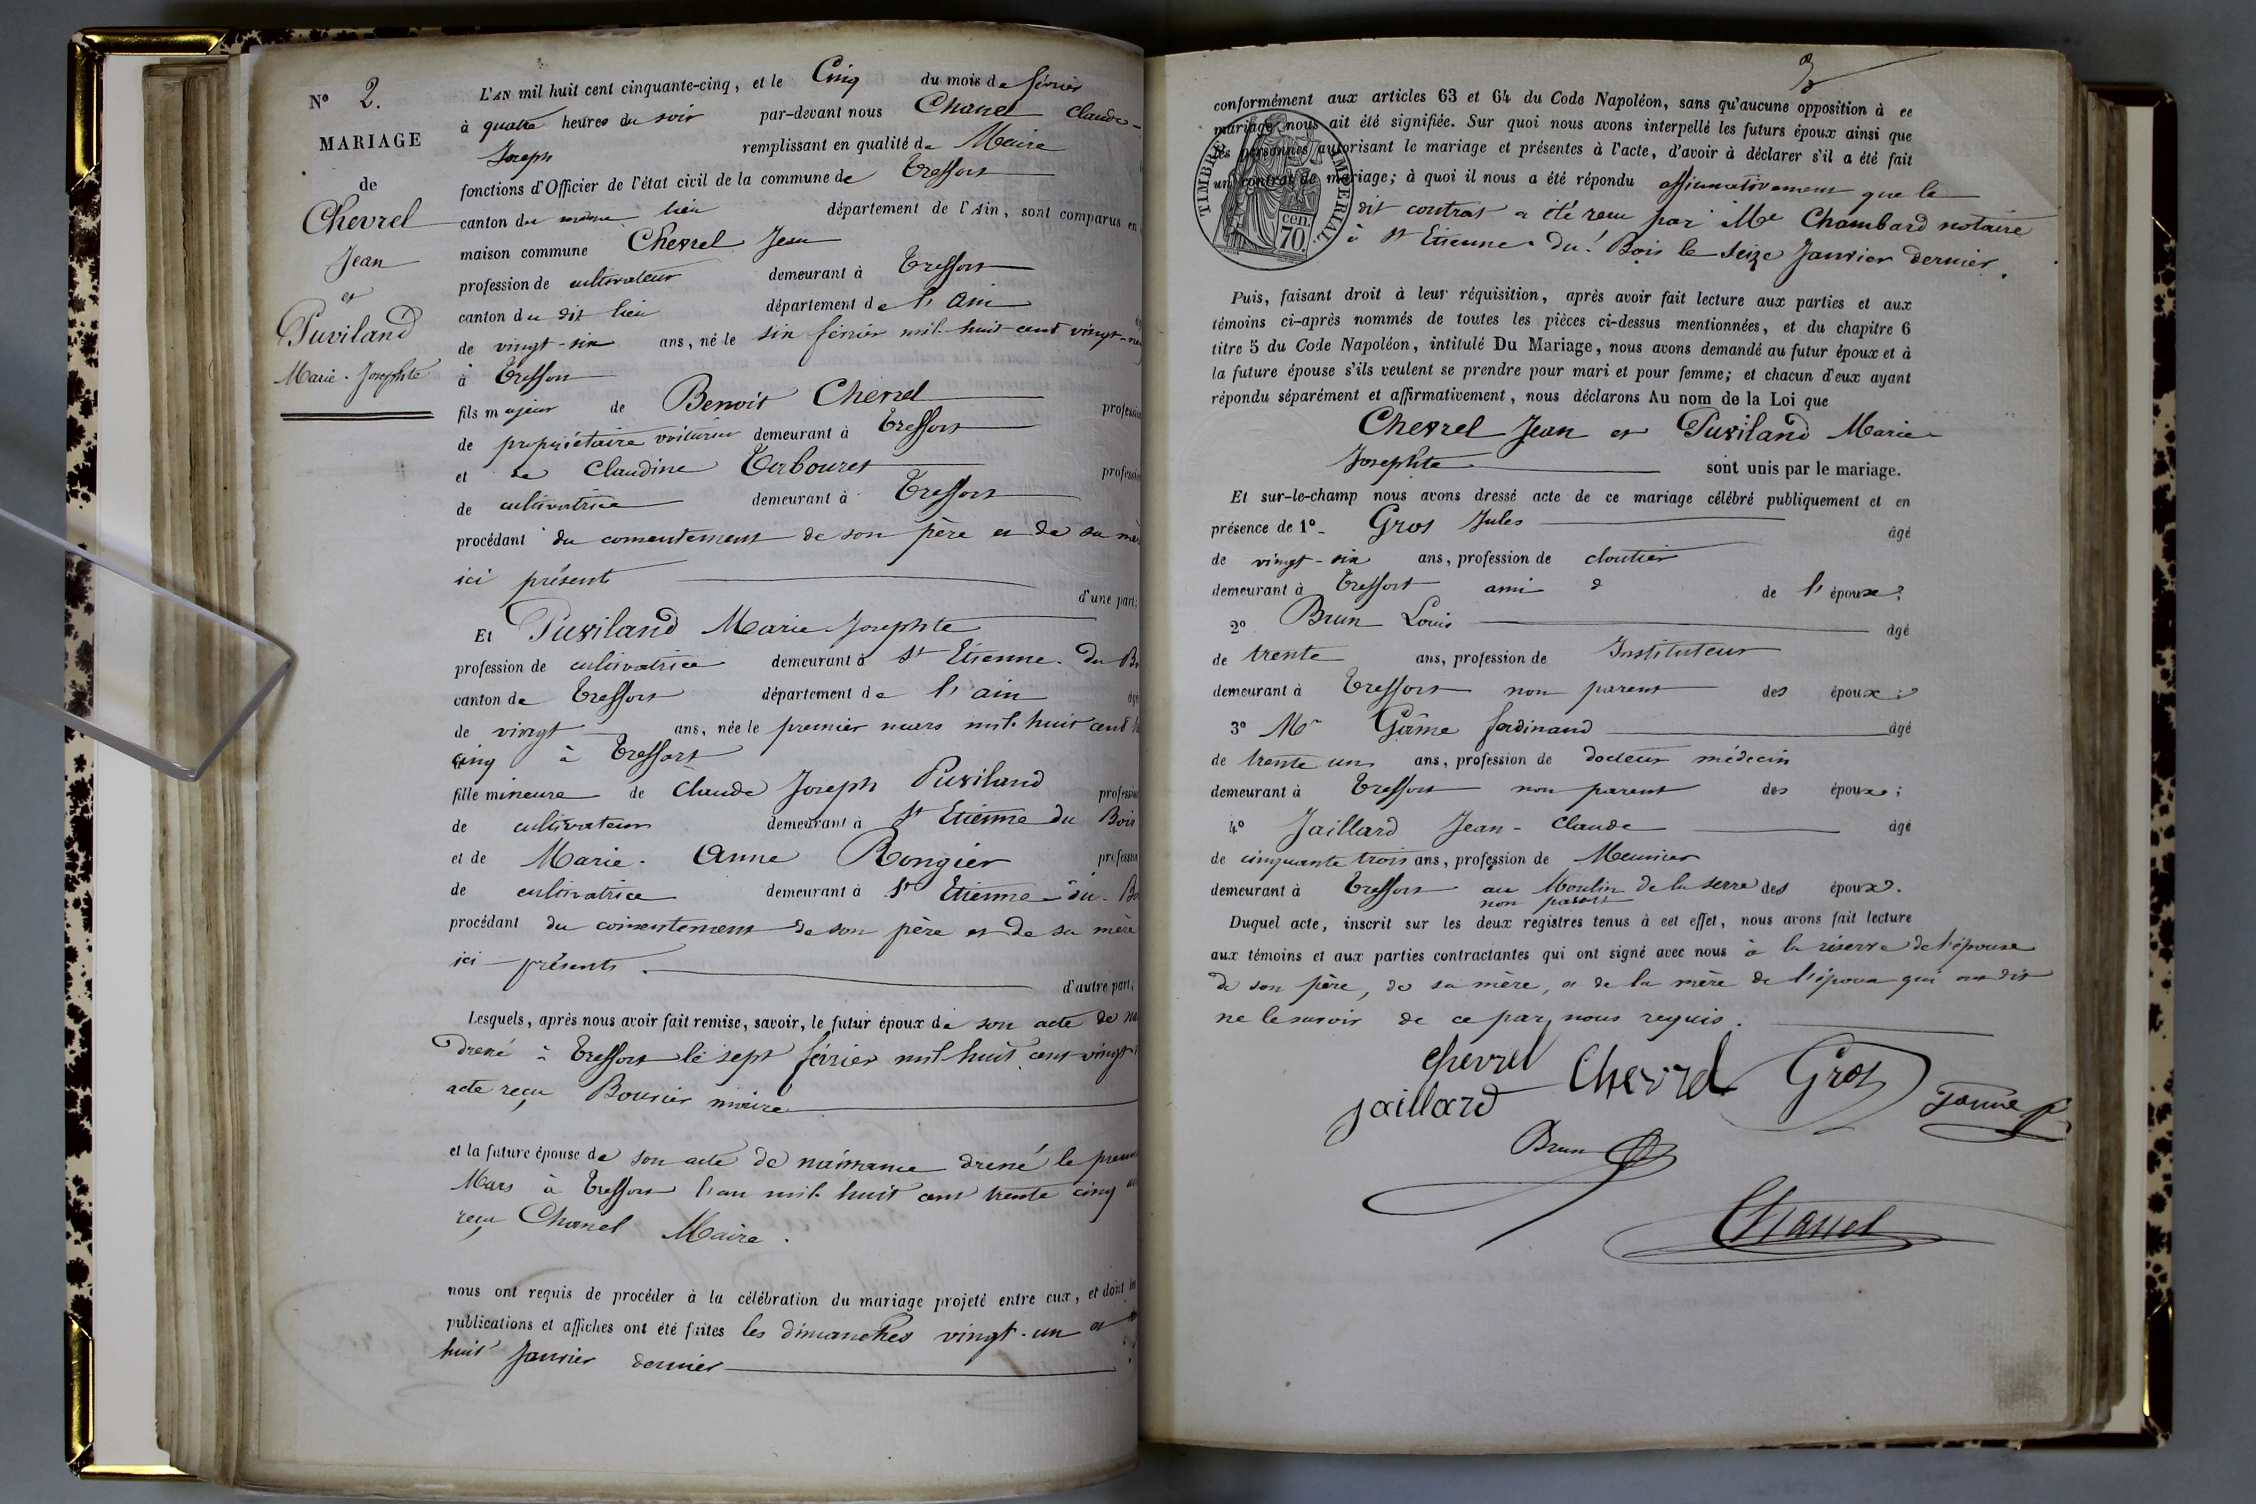 N° 2.
MARIAGE
de
Chevrel
Jean
et
Puviland
Marie-Josephte
L'AN mil huit cent cinquante-cinq, et le Cinq du mois de février
à quatre heures du soir par-devant nous Chanel Claude-
Joseph remplissant en qualité de Maire
fonctions d'Officier de l'état civil de la commune de Treffort
canton du même lieu département de l'Ain, sont comparus en
maison commune Chevrel Jean
profession de cultivateur demeurant à Treffort
canton du dit lieu département de l'Ain
de vingt-six ans, né le six février mil huit cent vingt-neuf
à Treffort
fils majeur de Benoit Chevrel profession
de propriétaire voiturier demeurant à Treffort
et de Claudine Terbouret profession
de cultivatrice demeurant à Treffort
procédant du consentement de son père et de sa mère
ici présents
d'une part;
Et Puviland Marie-Josephte
profession de cultivatrice demeurant à St Etienne-du-Bo
canton de Treffort département de l'ain âgé
de vingt ans, née le premier mars mil huit cent
cinq à Treffort
fille mineure de Claude Joseph Puviland profession
de cultivateur demeurant à St Etienne du Bois
et de Marie-Anne Rongier profession
de cultivatrice demeurant à St Etienne-du-Bo
procédant du consentement de son père et de sa mère
ici présents.
d'autre part;
Lesquels, après nous avoir fait remise, savoir, le futur époux de son acte de na
dressé à Treffort le sept février mil huit cent vingt
acte reçu Bouvier maire
et la future épouse de son acte de naissance dressé le premier
Mars à Treffort l'an mil huit cent trente cinq
reçu Chanel Maire.
nous ont requis de procéder à la célébration du mariage projeté entre eux, et dont les
publications et affiches ont été faites les dimanches vingt-un et
huit Janvier dernier
TIMBRE IMPERIAL
70 cen.
conformément aux articles 63 et 64 du Code Napoléon, sans qu'aucune opposition à ce
mariage nous ait été signifiée. Sur quoi nous avons interpellé les futurs époux ainsi que
les personnes autorisant le mariage et présentes à l'acte, d'avoir à déclarer s'il a été fait
un contrat de mariage; à quoi il nous a été répondu affirmativement que le
dit contrat a été reçu par Me Chambard notaire
à St Etienne-du-Bois le Seize Janvier dernier.
Puis, faisant droit à leur réquisition, après avoir fait lecture aux parties et aux
témoins ci-après nommés de toutes les pièces ci-dessus mentionnées, et du chapitre 6
titre 5 du Code Napoléon, intitulé Du Mariage, nous avons demandé au futur époux et à
la future épouse s'ils veulent se prendre pour mari et pour femme; et chacun d'eux ayant
répondu séparément et affirmativement, nous déclarons Au nom de la Loi que
Chevrel Jean et Puviland Marie-
Josephte sont unis par le mariage.
Et sur-le-champ nous avons dressé acte de ce mariage célébré publiquement et en
présence de 1° Gros Jules âgé
de vingt-six ans, profession de cloutier
demeurant à Treffort ami de l'époux;
2° Brun Louis âgé
de trente ans, profession de Instituteur
demeurant à Treffort non parent des époux;
3° Mr Gâme ferdinand âgé
de trente un ans, profession de docteur médecin
demeurant à Treffort non parent des époux;
4° Jaillard Jean-Claude âgé
de cinquante trois ans, profession de Meunier
demeurant à Treffort au Moulin de la serre des époux.
non parent
Duquel acte, inscrit sur les deux registres tenus à cet effet, nous avons fait lecture
aux témoins et aux parties contractantes qui ont signé avec nous à la réserve de l'épouse
de son père, de sa mère, et de la mère de l'époux qui ont dit
ne le savoir de ce par nous requis.
chevrel Chevrel Gros
jaillard Game
Brun
Chanel